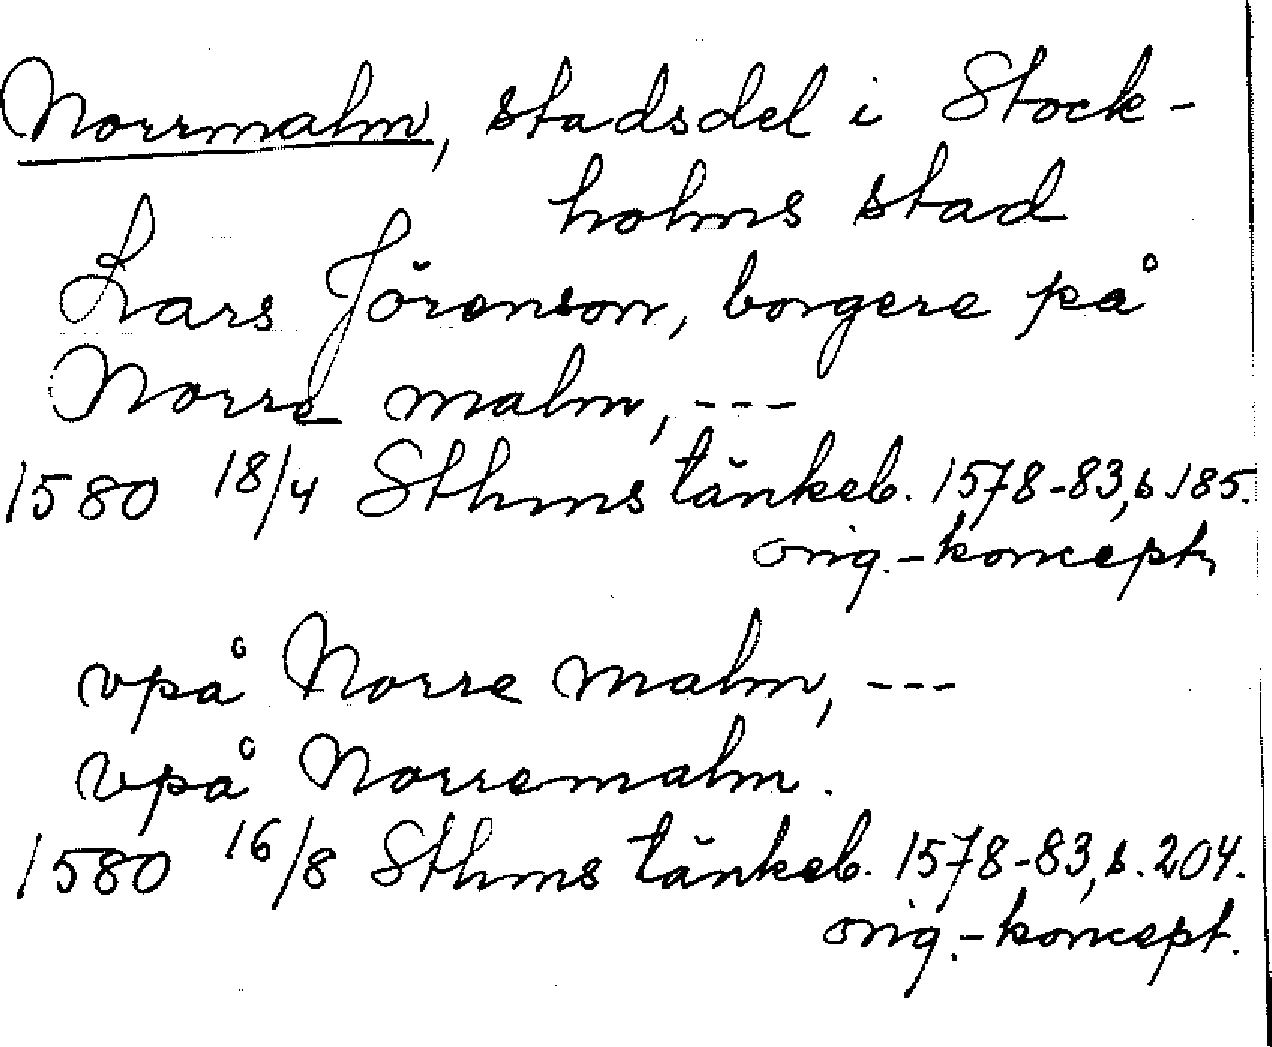 Norrmalm, stadsdel i Stock-
holms stad
Lars Jörenson, borgere på
Norre malm, ---
1580 18/4 Sthms tänkeb. 1578-83, s. 185.
orig.-koncept,
vpå Norre malm, ---
vpå Norremalm.
1580 16/8 Sthms tänkeb. 1578-83, s. 204.
orig.-koncept.